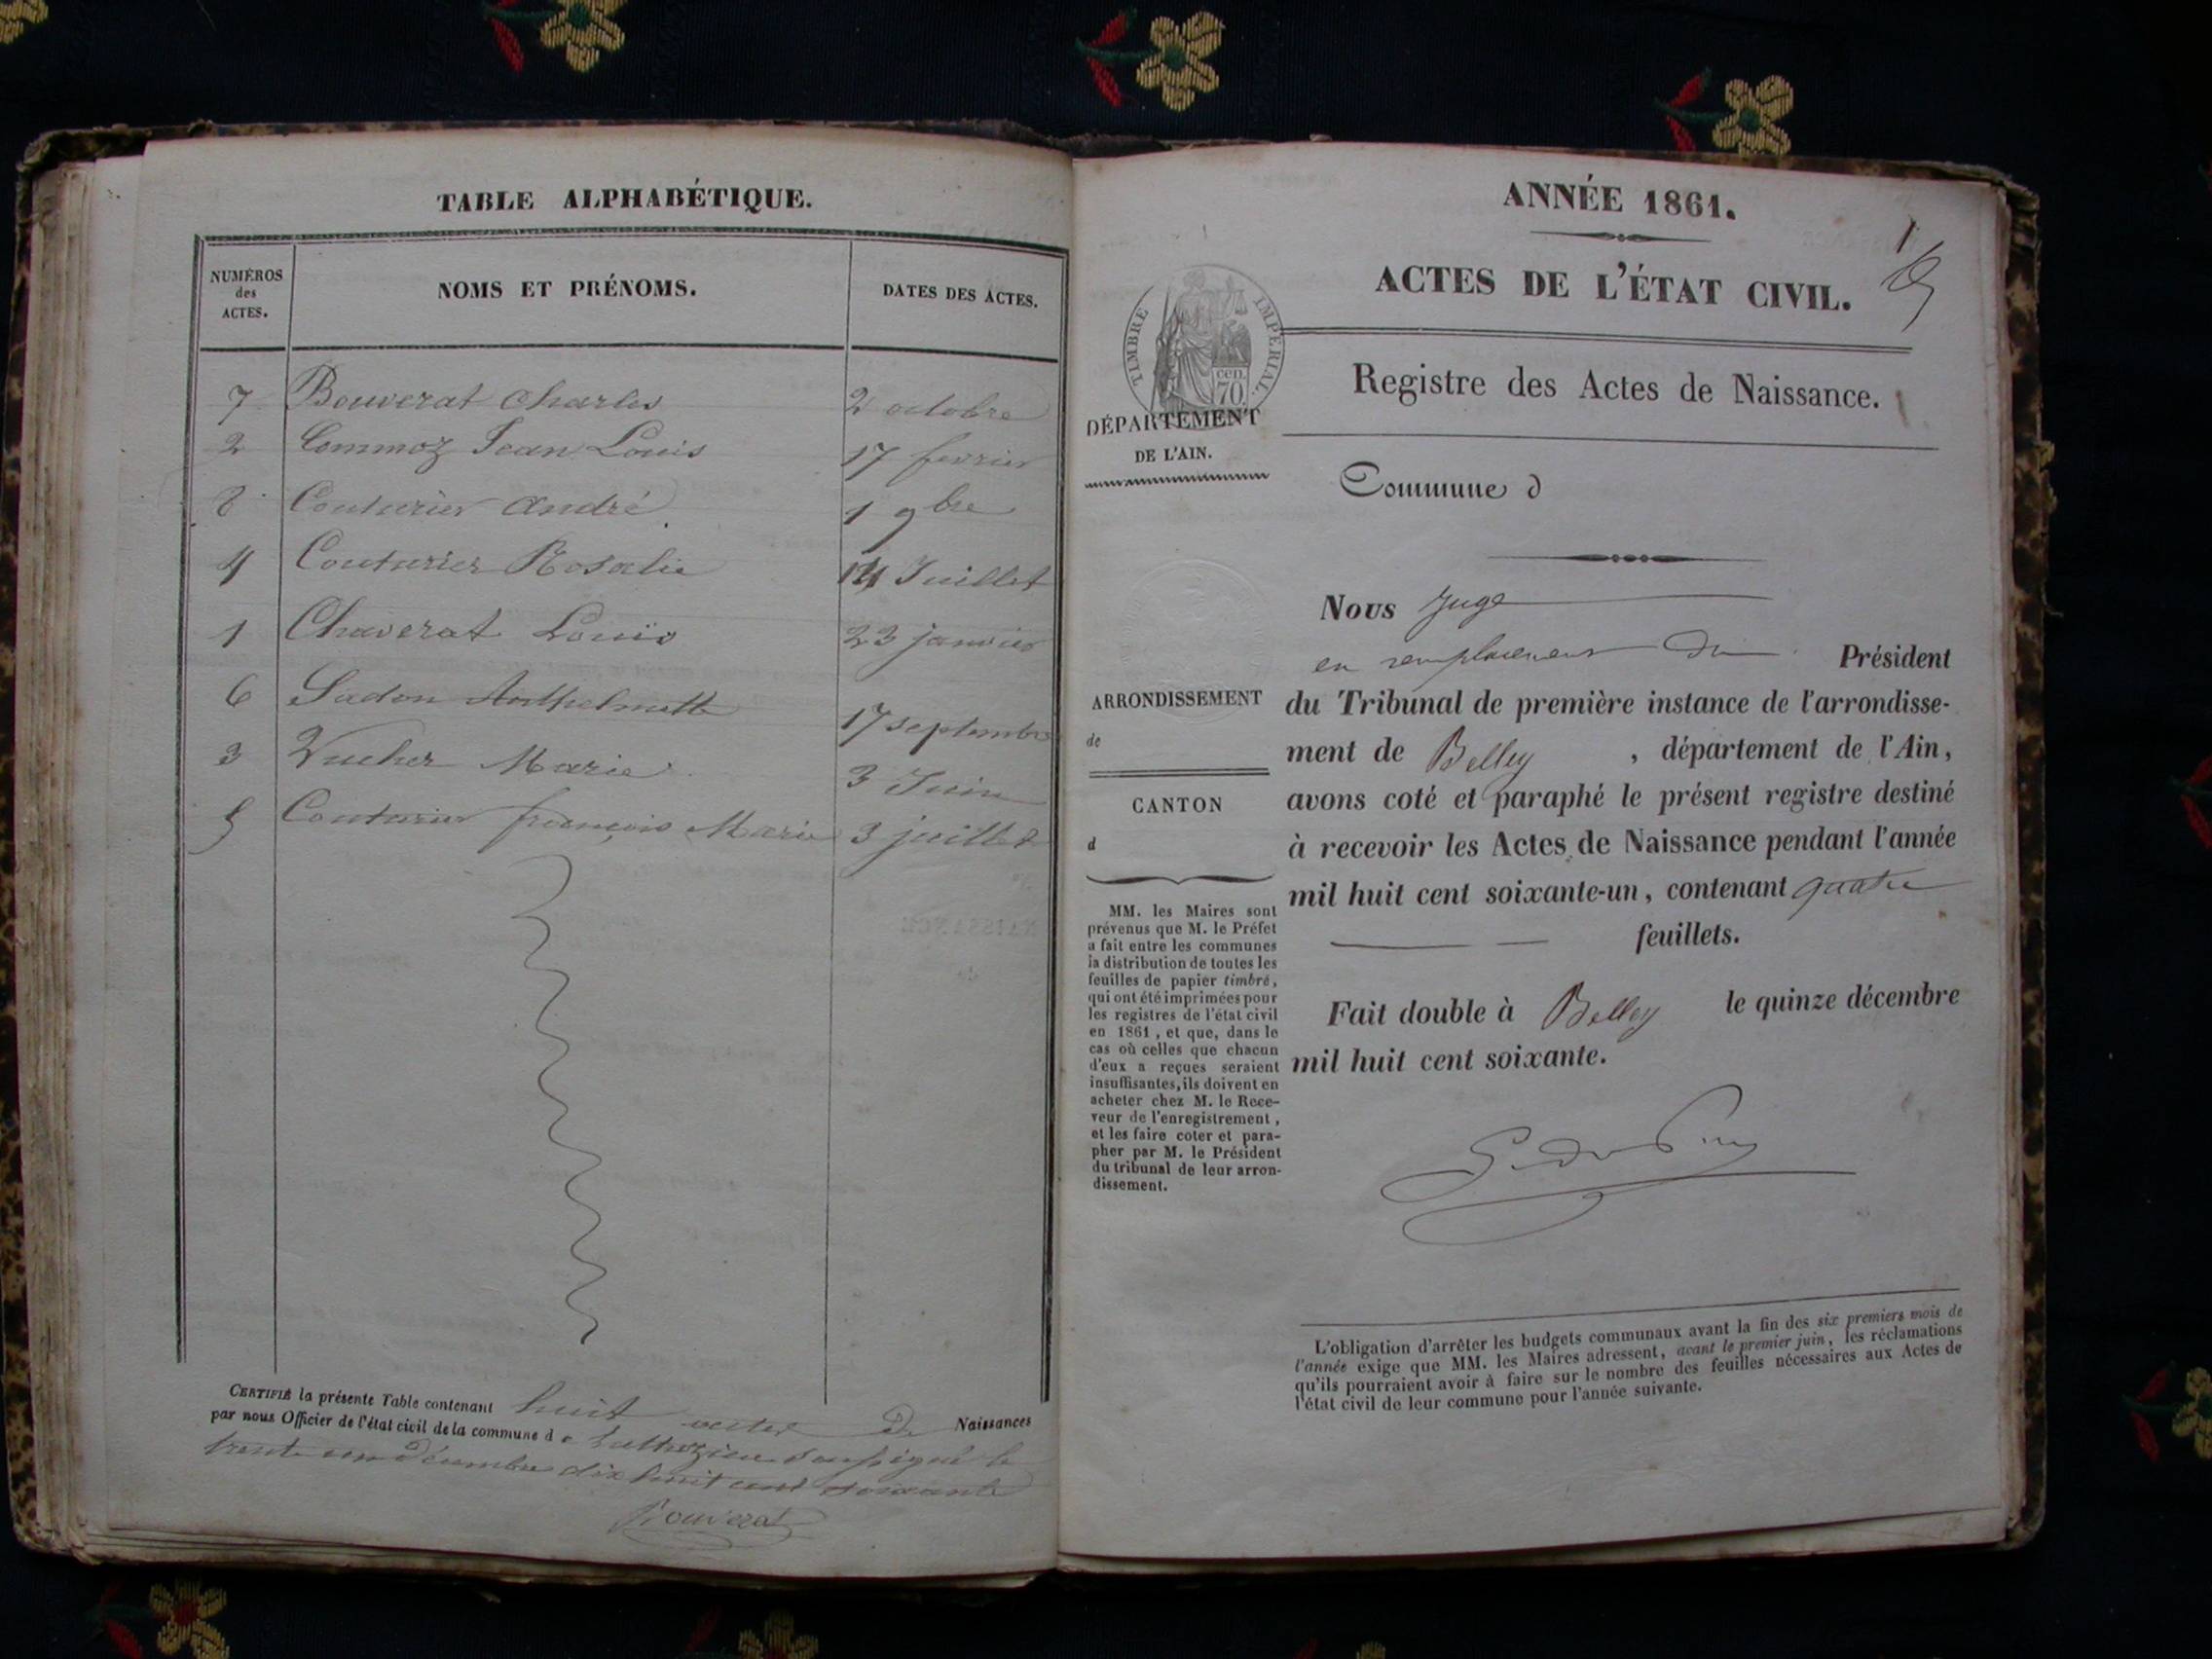 TABLE ALPHABÉTIQUE.
NUMÉROS des ACTES. NOMS ET PRÉNOMS. DATES DES ACTES.
7 Bouverat Charles 2 octobre
2 Commoz Jean Louis 17 fevrier
8 Couturier André 1 9bre
4 Couturier Rosalie Juillet
1 Chaverat Louis 23 janvier
6 Sadon Anthelmette 17 septembre
3 Vucher Marie 3 Juin
5 Couturier françois Marie 3 juillet
CERTIFIÉ la présente Table contenant huit actes de Naissances
par nous Officier de l'état civil de la commune d soussigné le
trente un décembre dix huit cent soixante
Bouverat
ANNÉE 1861.
1
ACTES DE L'ÉTAT CIVIL.
TIMBRE IMPÉRIAL.
70 cen.
Registre des Actes de Naissance.
DÉPARTEMENT
DE L'AIN.
Commune d
Nous Juge
en remplacement du Président
du Tribunal de première instance de l'arrondisse-
ment de Belley , département de l'Ain,
avons coté et paraphé le présent registre destiné
à recevoir les Actes de Naissance pendant l'année
mil huit cent soixante-un, contenant quatre
feuillets.
Fait double à Belley le quinze décembre
mil huit cent soixante.
ARRONDISSEMENT
de
CANTON
d
MM. les Maires sont
prévenus que M. le Préfet
a fait entre les communes
la distribution de toutes les
feuilles de papier timbré,
qui ont été imprimées pour
les registres de l'état civil
en 1861, et que, dans le
cas où celles que chacun
d'eux a reçues seraient
insuffisantes, ils doivent en
acheter chez M. le Rece-
veur de l'enregistrement,
et les faire coter et para-
pher par M. le Président
du tribunal de leur arron-
dissement.
L'obligation d'arrêter les budgets communaux avant la fin des six premiers mois de
l'année exige que MM. les Maires adressent, avant le premier juin, les réclamations
qu'ils pourraient avoir à faire sur le nombre des feuilles nécessaires aux Actes de
l'état civil de leur commune pour l'année suivante.